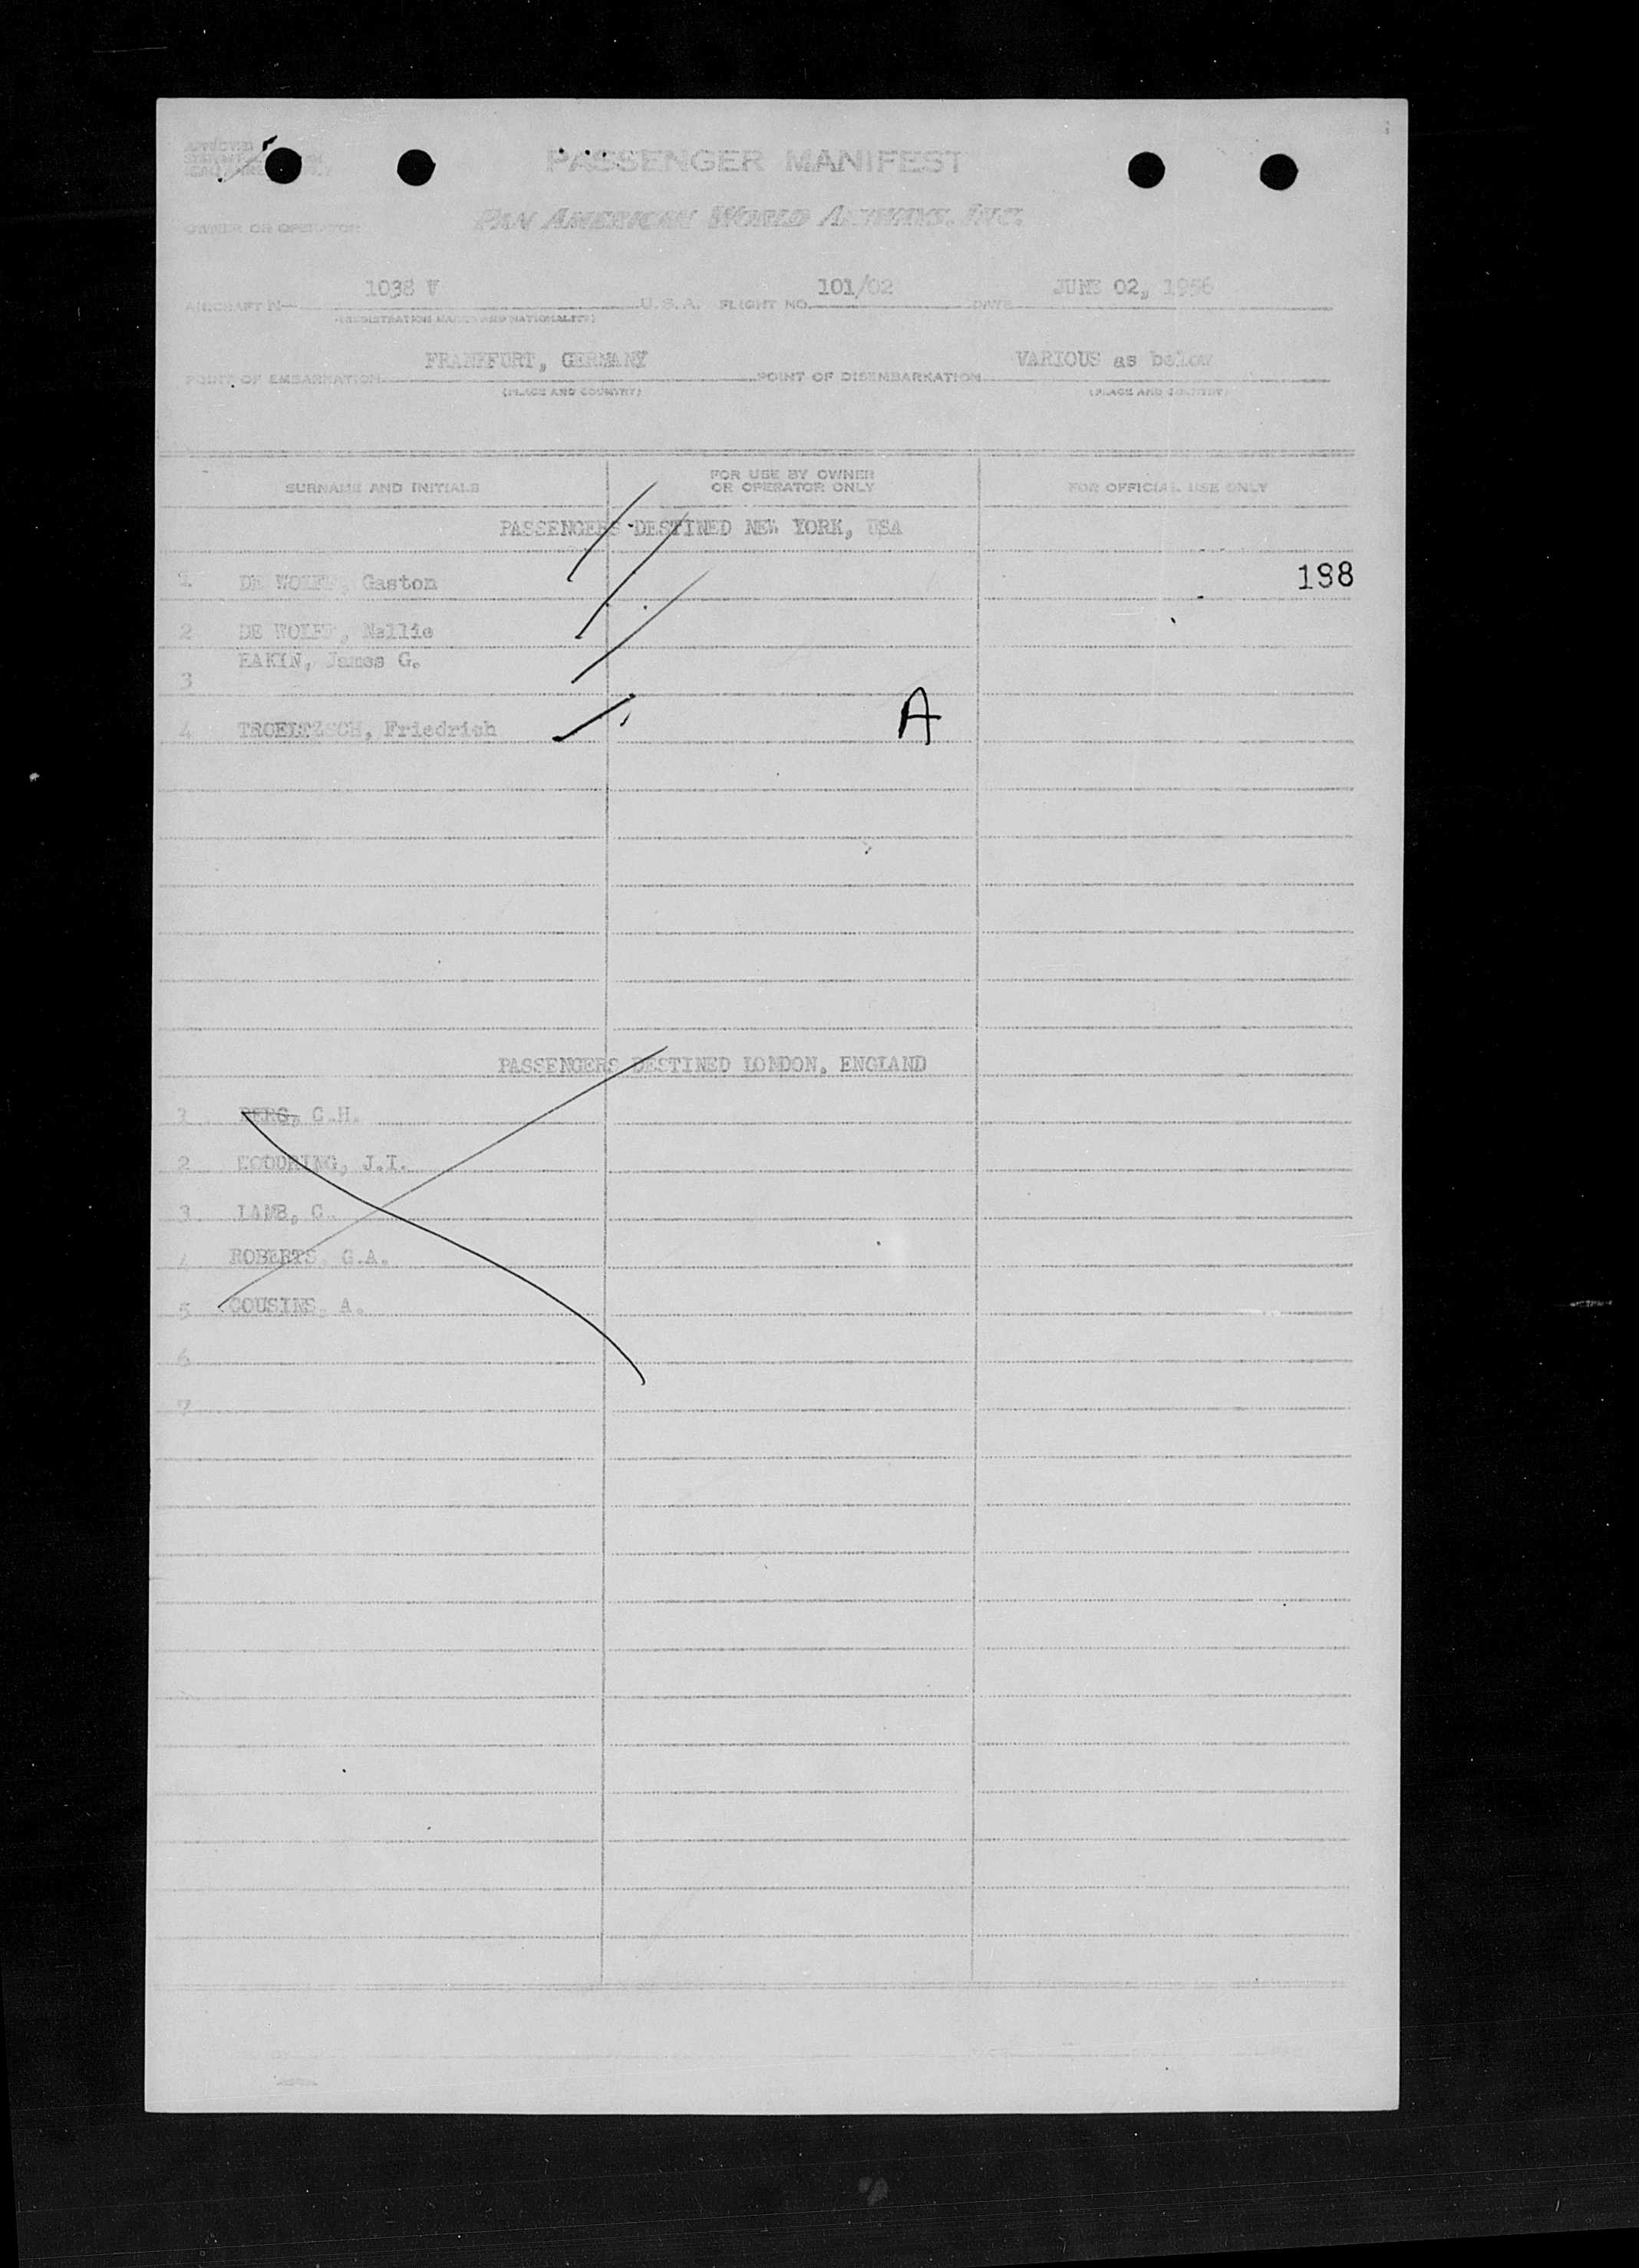 PASSENGER MANIFEST
OWNER OR OPERATOR PAN AMERICAN WORLD AIRWAYS, INC.
AIRCRAFT N— 1038 V U.S.A. FLIGHT NO. 101/02 DATE JUNE 02, 1956
(REGISTRATION MARKS AND NATIONALITY)
POINT OF EMBARKATION FRANKFURT, GERMANY POINT OF DISEMBARKATION VARIOUS as below
(PLACE AND COUNTRY) (PLACE AND COUNTRY)
SURNAME AND INITIALS FOR USE BY OWNER OR OPERATOR ONLY FOR OFFICIAL USE ONLY
PASSENGERS DESTINED NEW YORK, USA
1. DE WOLFF, Gaston 198
2 DE WOLFF, Nellie
3 EAKIN, James G.
4 TROELTZSCH, Friedrich A
PASSENGERS DESTINED LONDON, ENGLAND
1 BERG, C.H.
2 J.I.
3 LAMB, C.
4 ROBERTS, G.A.
5 COUSINS, A.
6
7